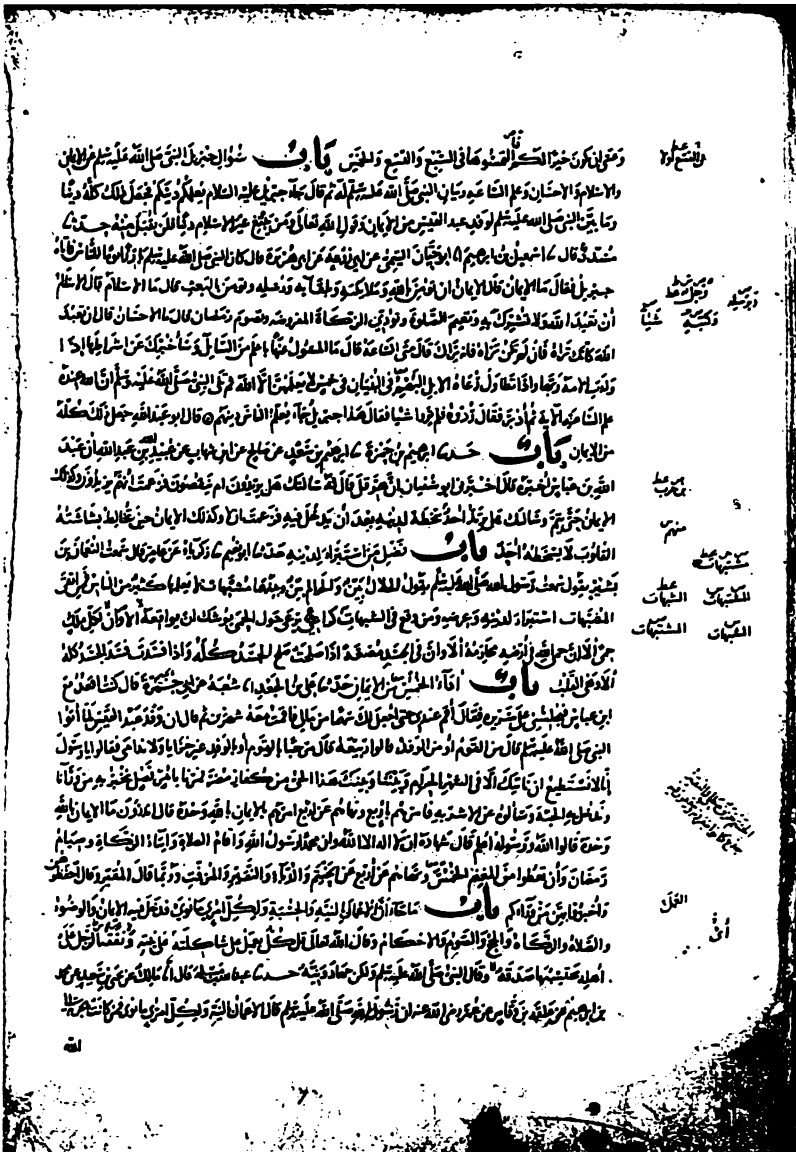 وعسى ان يكون خيرا لكم التمسوها في السبع والتسع والخمس باب سؤال جبريل النبي صلى الله عليه وسلم عن الايمان
والاسلام والاحسان وعلم الساعة وبيان النبي صلى الله عليه وسلم له ثم قال جاء جبريل عليه السلام يعلمكم دينكم فجعل ذلك كله دينا
وما بين النبي صلى الله عليه وسلم لوفد عبد القيس من الايمان وقول الله تعالى ومن يبتغ غير الاسلام دينا فلن يقبل منه حدثنا
مسدد قال اسمعيل بن ابرهيم ابو حيان التيمي عن ابي زرعة عن ابي هريرة قال كان النبي صلى الله عليه وسلم بارزا يوما للناس فاتاه
جبريل فقال ما الايمان قال الايمان ان تؤمن بالله وملائكته وبلقائه ورسله وتؤمن بالبعث قال ما الاسلام قال الاسلام
أن تعبد الله ولا تشرك به وتقيم الصلوة وتؤدي الزكاة المفروضة وتصوم رمضان قال ما الاحسان قال ان تعبد
الله كانك تراه فان لم تكن تراه فانه يراك قال متى الساعة قال ما المسئول عنها باعلم من السائل وسأخبرك عن اشراطها اذا
ولدت الامة ربها واذا تطاول رعاة الابل البهم في البنيان في خمس لا يعلمهن الا الله ثم تلى النبي صلى الله عليه وسلم ان الله عنده
علم الساعة الآية ثم أدبر فقال ردوه فلم يروا شيا فقال هذا جبريل جاء يعلم الناس دينهم قال ابو عبد الله جعل ذلك كله
من الايمان باب حدثنا ابرهيم بن حمزة ابرهيم بن سعد عن صالح عن ابن شهاب عن عبيد الله بن عبد الله ان عبد
الله بن عباس اخبره قال اخبرني ابو سفيان ان هرقل قال له سالتك هل يزيدون ام ينقصون فزعمت انهم يزيدون وكذلك
الايمان حتى يتم وسالتك هل يرتد احد سخطة لدينه بعد أن يدخل فيه فزعمت ان لا وكذلك الايمان حين تخالط بشاشته
القلوب لا يسخطه احد باب فضل من استبرأ لدينه حدثنا ابو نعيم زكرياء عن عامر قال سمعت النعمان بن
بشير يقول سمعت رسول الله صلى الله عليه وسلم يقول الحلال بين والحرام بين وبينهما مشبهات لا يعلمها كثير من الناس فمن اتقى
المشبهات استبرا لدينه وعرضه ومن وقع في الشبهات كراعي يرعى حول الحمى يوشك ان يواقعه الا وان لكل ملك
حمى الا ان حمى الله في ارضه محارمه الا وان في الجسد مضغة اذا صلحت صلح الجسد كله واذا فسدت فسد الجسد كله
الا وهي القلب باب اداء الخمس من الايمان حدثنا علي بن الجعد شعبة عن ابي جمرة قال كنت اقعد مع
ابن عباس يجلسني على سريره فقال أقم عندي حتى اجعل لك سهما من مالي فاقمت معه شهرين ثم قال ان وفد عبد القيس لما اتوا
النبي صلى الله عليه وسلم قال من القوم او من الوفد قالوا ربيعة قال مرحبا بالقوم أو بالوفد غير خزايا ولا ندامى فقالوا يا رسول
الله انا لا نستطيع ان ناتيك الا في الشهر الحرام وبيننا وبينك هذا الحي من كفار مضر فمرنا بامر فصل نخبر به من وراءنا
وندخل به الجنة وسألوه عن الاشربة فامرهم باربع ونهاهم عن اربع امرهم بالايمان بالله وحده قال اتدرون ما الايمان بالله
وحده قالوا الله ورسوله اعلم قال شهادة ان لا اله الا الله وان محمدا رسول الله واقام الصلاة وايتاء الزكاة وصيام
رمضان وأن تعطوا من المغنم الخمس ونهاهم عن أربع عن الحنتم والدباء والنقير والمزفت وربما قال المقير وقال احفظوهن
واخبروا بهن من وراءكم باب ما جاء ان الاعمال بالنية والحسبة ولكل امرئ ما نوى فدخل فيه الايمان والوضوء
والصلاة والزكاة والحج والصوم والاحكام وقال الله تعالى قل كل يعمل على شاكلته على نيته ونفقة الرجل على
اهله يحتسبها صدقة وقال النبي صلى الله عليه وسلم ولكن جهاد ونية حدثنا عبد الله بن مسلمة قال مالك عن يحيى بن سعيد عن محمد
بن ابرهيم عن علقمة بن وقاص عن عمر رضي الله عنه ان رسول الله صلى الله عليه وسلم قال الاعمال بالنية ولكل امرئ ما نوى فمن كانت هجرته الى
الله
شيأ
منهم
مشتبهات
المشتبهات
الشبهات
العمل